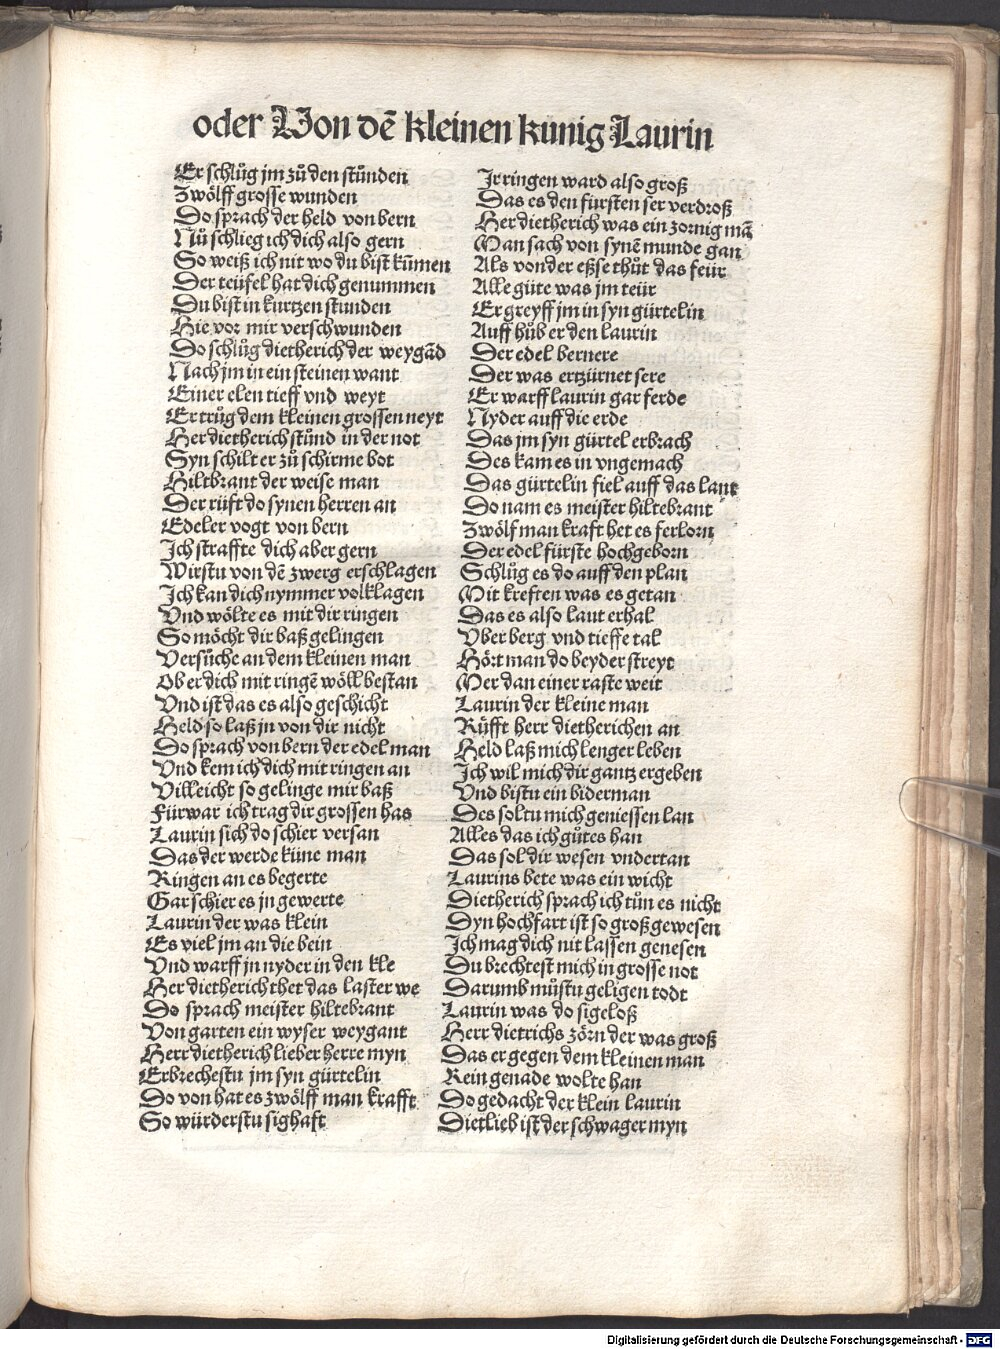 oder Von dē kleinen kunig Laurin
Er schlůg jm zů den stůnden
Zwölff grosse wunden
Do sprach der held von bern
Nů schlieg ich dich also gern
So weiß ich nit wo du bist kūmen
Der teüfel hat dich genummen
Du bist in kurtzen stunden
Hie vor mir verschwunden
Do schlůg dietherich der weygād
Nach jm in ein steinen want
Einer elen tieff vnd weyt
Er trůg dem kleinen grossen neyt
Her dietherich stůnd in der not
Syn schilt er zů schirme bot
Hiltbrant der weise man
Der růft do synen herren an
Edeler vogt von bern
Ich straffte dich aber gern
Wirstu von dē zwerg erschlagen
Ich kan dich nymmer volklagen
Vnd wölte es mit dir ringen
So möcht dir baß gelingen
Versůche an dem kleinen man
Ob er dich mit ringē wöll bestan
Vnd ist das es also geschicht
Held so laß jn von dir nicht
Do sprach von bern der edel man
Vnd kem ich dich mit ringen an
Villeicht so gelinge mir baß
Fürwar ich trag dir grossen has
Laurin sich do schier versan
Das der werde küne man
Ringen an es begerte
Gar schier es jn gewerte
Laurin der was klein
Es viel jm an die bein
Vnd warff jn nyder in den kle
Her dietherich thet das laster we
Do sprach meister hiltebrant
Von garten ein wyser weygant
Herr dietherich lieber herre myn
Erbrechestu jm syn gürtelin
Do von hat es zwölff man krafft
So würderstu sighaft
Ir ringen ward also groß
Das es den fürsten ser verdroß
Her dietherich was ein zornig mā
Man sach von synē munde gan
Als von der eßse thůt das feür
Alle güte was jm teür
Er greyff jm in syn gürtelin
Auff hůb er den laurin
Der edel bernere
Der was ertzürnet sere
Er warff laurin gar ferde
Nyder auff die erde
Das jm syn gürtel erbrach
Des kam es in vngemach
Das gürtelin fiel auff das lant
Do nam es meister hiltebrant
Zwölf man kraft het es ferlorn
Der edel fürste hochgeborn
Schlůg es do auff den plan
Mit kreften was es getan
Das es also laut erhal
Vber berg vnd tieffe tal
Hört man do beyder streyt
Mer dan einer raste weit
Laurin der kleine man
Růfft herr dietherichen an
Held laß mich lenger leben
Ich wil mich dir gantz ergeben
Vnd bistu ein biderman
Des soltu mich geniessen lan
Alles das ich gůtes han
Das sol dir wesen vndertan
Laurins bete was ein wicht
Dietherich sprach ich tůn es nicht
Dyn hochfart ist so groß gewesen
Ich mag dich nit lassen genesen
Du brechtest mich in grosse not
Darumb můstu geligen todt
Laurin was do sigeloß
Herr dietrichs zörn der was groß
Das er gegen dem kleinen man
Kein genade wolte han
Do gedacht der klein laurin
Dietlieb ist der schwager myn
Digitalisierung gefördert durch die Deutsche Forschungsgemeinschaft - DFG